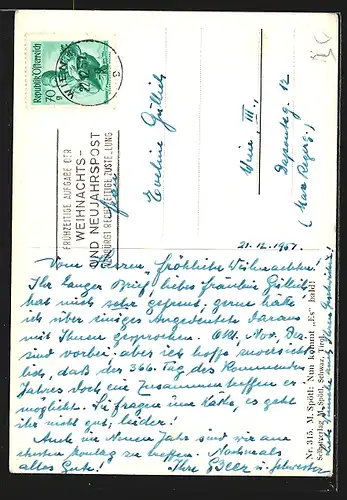 Republik Österreich
70
g
WIEN
21.12.57
FRÜHZEITIGE AUFGABE DER
WEIHNACHTS-
UND NEUJAHRSPOST
VERBÜRGT RECHTZEITIGE ZUSTELLUNG
Frau
Eveline Gütlich
Wien, III.,
12
(Max Regerg.)
21.12.1957.
Vom Herzen "fröhliche Weihnachten"!
Ihr langer Brief, liebes Fräulein Gütlich
hat mich sehr gefreut, gerne hätte
ich über einiges Angedeutete daraus
mit Ihnen gesprochen. Okt., Nov., Dez.
sind vorbei, aber ich hoffe zuversicht-
lich, daß der 366. Tag des kommenden
Jahres doch ein Zusammentreffen er-
möglicht. Sie fragen um Käthe, es geht
ihr nicht gut, leider!
Auch im Neuen Jahr sind wir am
ersten Montag zu treffen. Nochmals
alles Gute! Ihre u. Schwester
Nr. 315. M. Spötl: Nun kommt „Es" bald!
Selbstverlag M. Spötl, Schwaz, Tirol